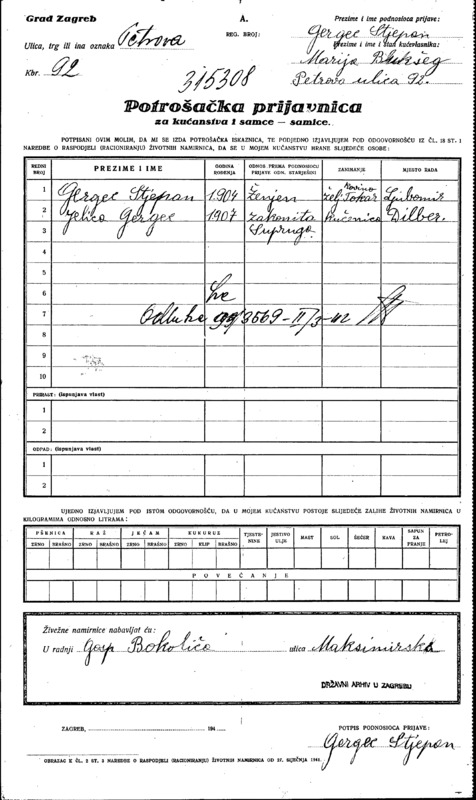 Grad Zagreb
A.
Prezime i ime podnosioca prijave:
Ulica, trg ili ina oznaka Petrova
REG. BROJ:
Gergec Stjepan
Prezime i ime i stan kućevlasnika:
Kbr. 92
Marija
315308
Petrova ulica 92.
Potrošačka prijavnica
za kućanstva i samce — samice.
POTPISANI OVIM MOLIM, DA MI SE IZDA POTROŠAČKA ISKAZNICA, TE PODJEDNO IZJAVLJUJEM POD ODGOVORNOŠĆU IZ ČL. 18 ST. 1
NAREDBE O RASPODJELI (RACIONIRANJU) ŽIVOTNIH NAMIRNICA, DA SE U MOJEM KUĆANSTVU HRANE SLIJEDEĆE OSOBE:
REDNI BROJ PREZIME I IME GODINA ROĐENJA ODNOS PREMA PODNOSIOCU PRIJAVE ODN. STARJEŠINI ZANIMANJE MJESTO RADA
1 Gergec Stjepan 1904 Ženjen Tokar Ljubomir
2 Jelica Gergec 1907 zakonita kućanica Dilber.
3 Supruga.
4
5
6
7 Odluka 3569-II/3-42
8
9
10
PRIRAST: (ispunjava vlast)
1
2
OTPAD: (ispunjava vlast)
1
2
UJEDNO IZJAVLJUJEM POD ISTOM ODGOVORNOŠĆU, DA U MOJEM KUĆANSTVU POSTOJE SLIJEDEĆE ZALIHE ŽIVOTNIH NAMIRNICA U
KILOGRAMIMA ODNOSNO LITRAMA:
PŠENICA RAŽ JEČAM KUKURUZ TJESTENINE JESTIVO ULJE MAST SOL ŠEĆER KAVA SAPUN ZA PRANJE PETROLEJ
ZRNO BRAŠNO ZRNO BRAŠNO ZRNO BRAŠNO ZRNO KLIP BRAŠNO
POVEĆANJE
Živežne namirnice nabavljat ću:
U radnji Gosp Bokolića ulica Maksimirska
DRŽAVNI ARHIV U ZAGREBU
ZAGREB, 194
POTPIS PODNOSIOCA PRIJAVE:
Gergec Stjepan
OBRAZAC K ČL. 2 ST. 2 NAREDBE O RASPODJELI (RACIONIRANJU) ŽIVOTNIH NAMIRNICA OD 27. SIJEČNJA 1941.